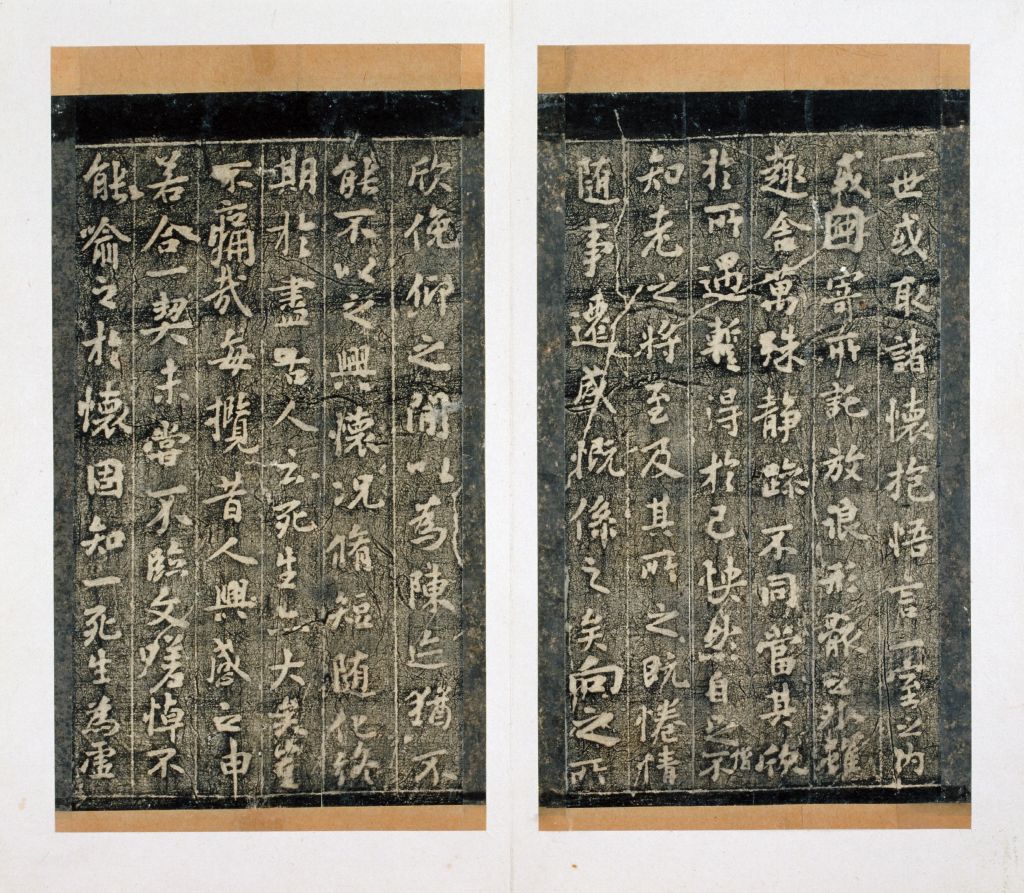 一世或取諸懷抱悟言一室之內
或因寄所託放浪形骸之外雖
趣舍萬殊靜躁不同當其欣
於所遇暫得於己快然自足不
知老之將至及其所之既惓情
随事遷感慨係之矣向之所
欣俛仰之閒以為陳迹猶不
能不以之興懷況脩短随化終
期於盡古人云死生亦大矣豈
不痛哉每攬昔人興感之由
若合一契未嘗不臨文嗟悼不
能喻之於懷固知一死生為虛